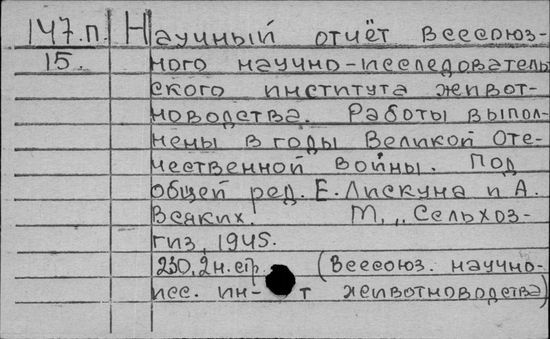 147.п. Научный отчёт Всесоюз-
15. ного научно-исследователь
ского института живот-
новодства. Работы выпол-
нены в годы Великой Оте-
чественной войны. Под
общей ред. Е. Лискуна и А.
Всяких. М., „Сельхоз-
гиз, 1945.
230, 2 н. стр. (Всесоюз. научно-
исс. ин-т животноводства)